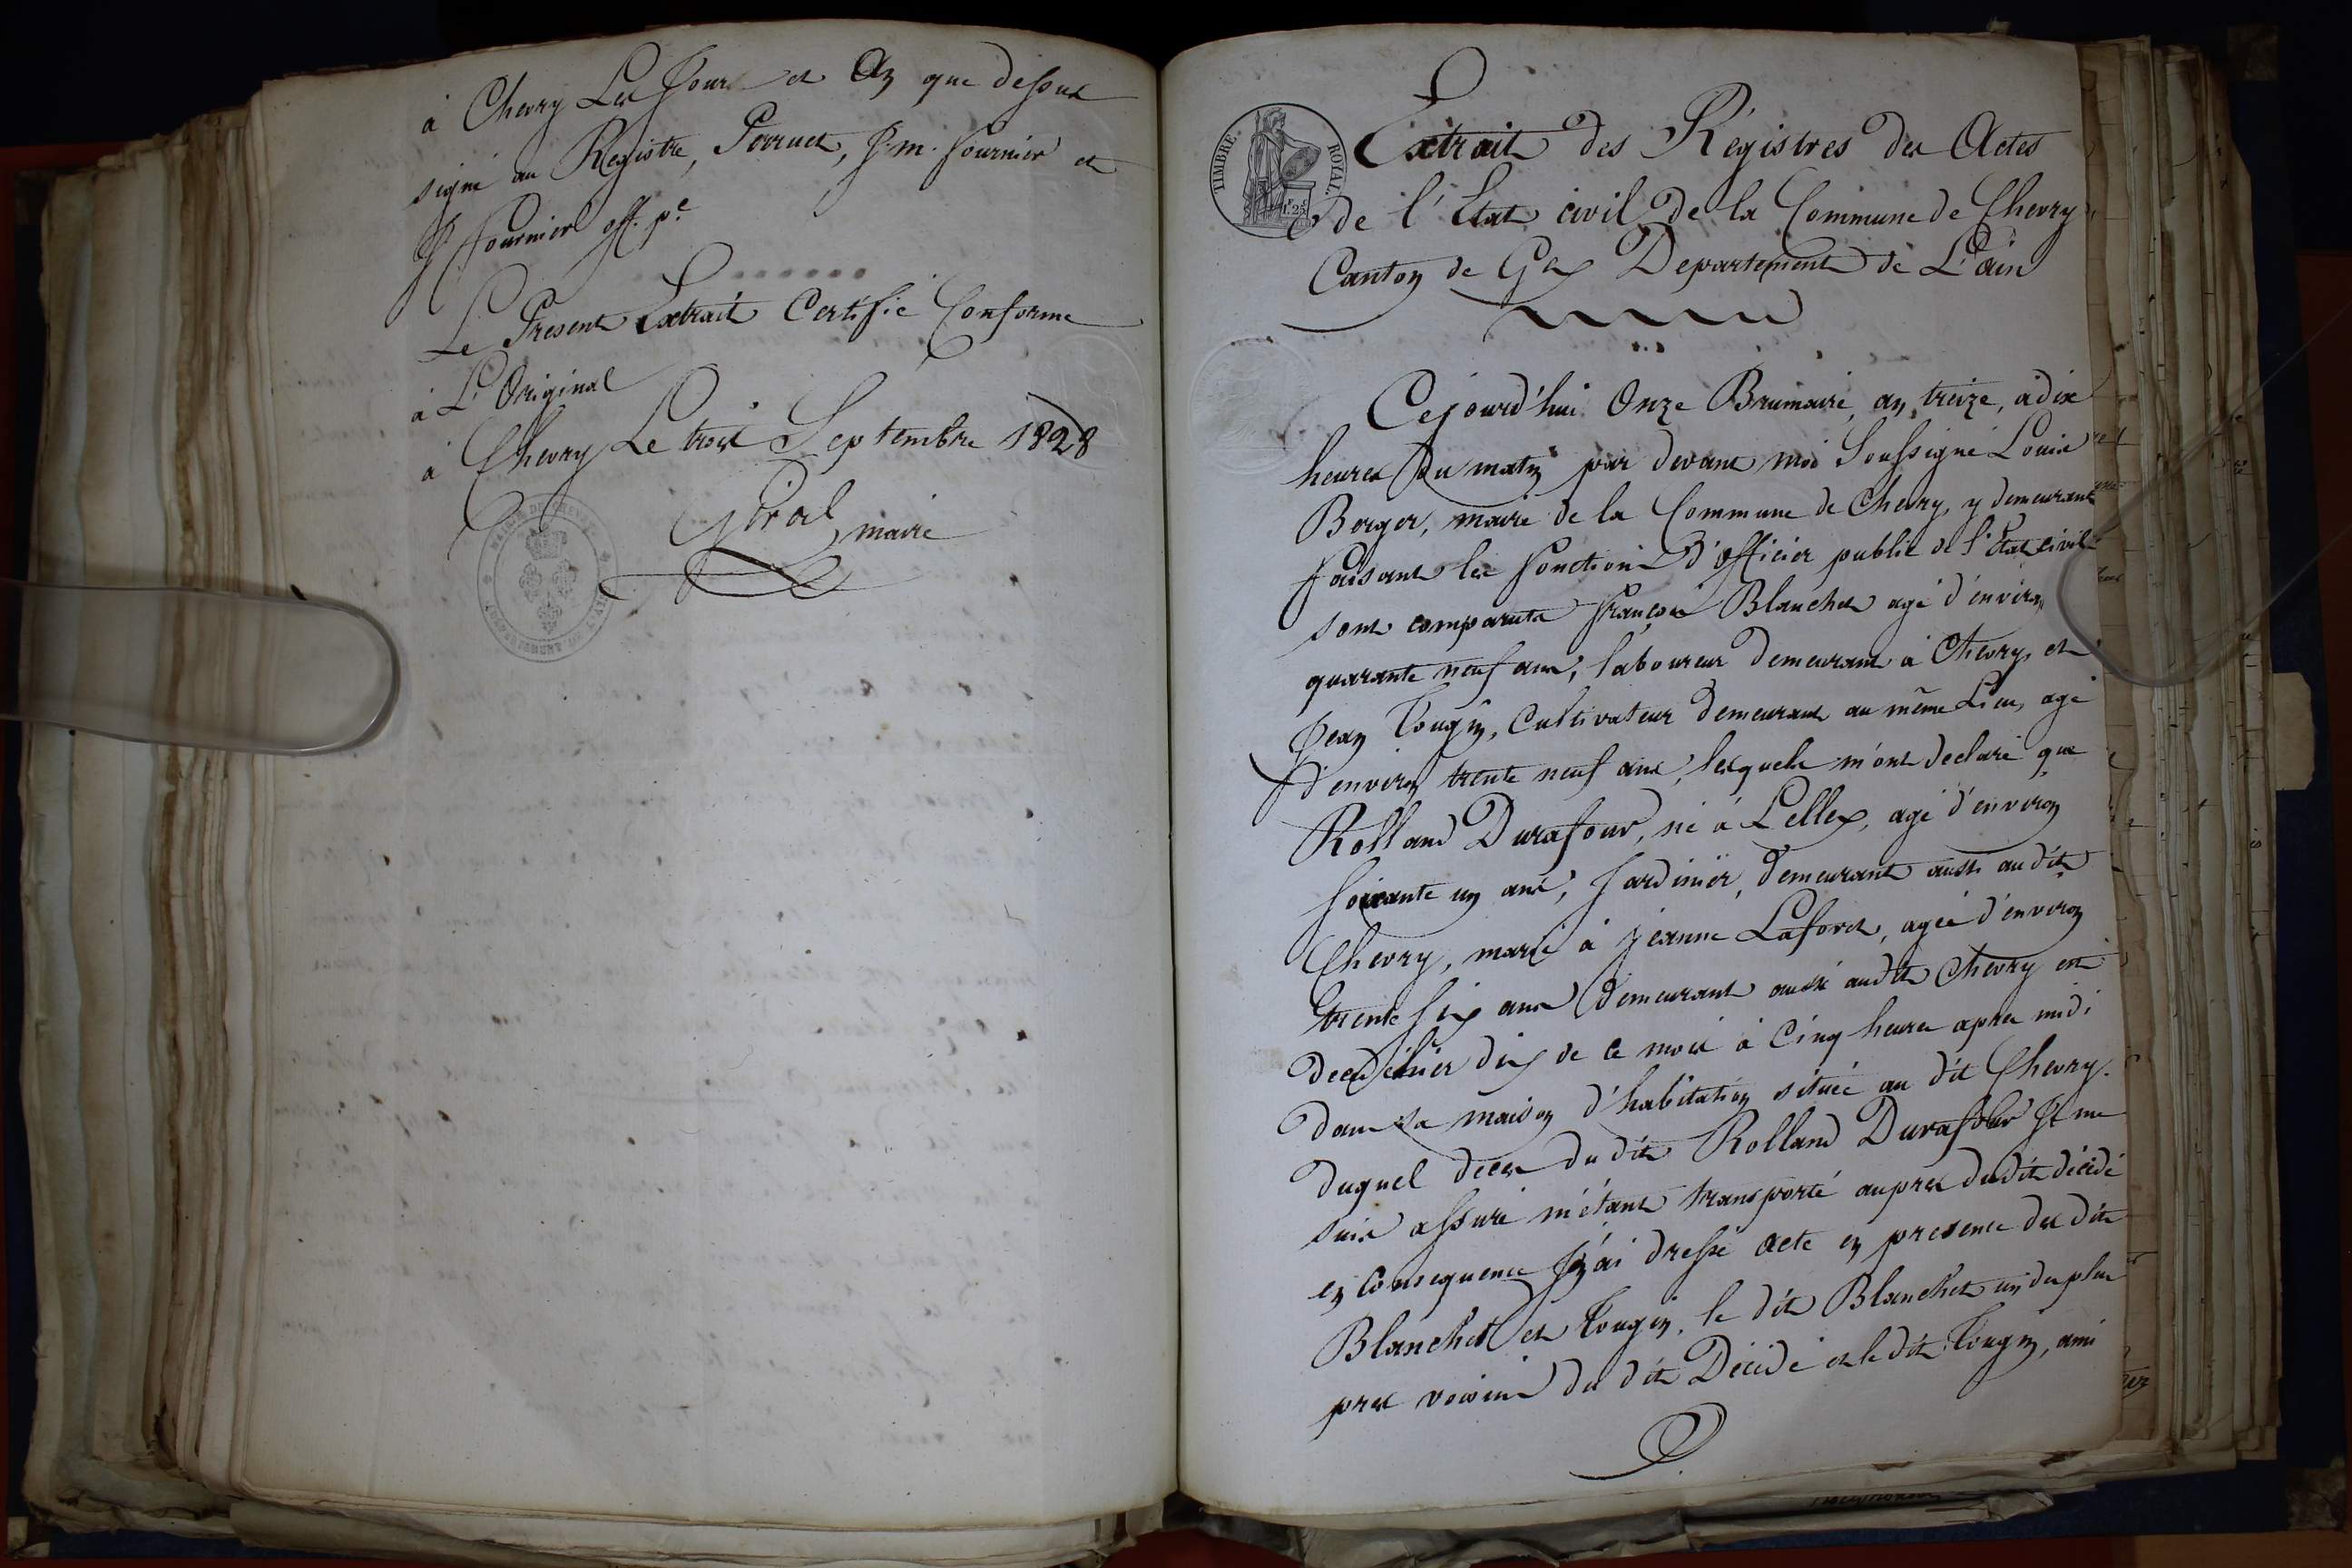 à Chevry Les Jour et An que dessus
signé au Registre, Perruet, J. m. fournier et
J. fournier off. p.e
Le Present Extrait Certifié Conforme
à L'Original
à Chevry Le trois Septembre 1828
Girod
maire
MAIRIE DE CHEVRY
TIMBRE ROYAL
1f.25
Extrait des Régistres des Actes
de l'Etat civil de la Commune de Chevry
Canton de Gex Departement de L'ain
Cejourd'hui Onze Brumaire, an treize, à dix
heures du matin par devant moi Soussigné Louis
Berger, maire de la Commune de Chevry, y demeurant
faisant les fonctions d'officier public de l'Etat civil
sont comparuts françois Blanchet agé d'environ
quarante neuf ans, laboureur demeurant à Chevry, et
Jean Tougin, Cultivateur demeurant au même Lieu, agé
d'environ trente neuf ans, lesquels m'ont declaré que
Rolland Durafour, né à Lellex, agé d'environ
soixante un ans, Jardinier, demeurant aussi audit
Chevry, marié à jeanne Laforet, ageé d'environ
trente six ans demeurant aussi audit Chevry est
decedé hier dix de ce mois à Cinq heures apres midi
dans sa maison d'habitation située au dit Chevry.
duquel deces du dit Rolland Durafour Je me
suis assuré m'étant transporté aupres dudit décidé
en consequence J'en ai dressé acte en presence des dits
Blanchet et Tougin, le dit Blanchet un des plus
pres voisins du dit Décidé et le dit Tougin, ami